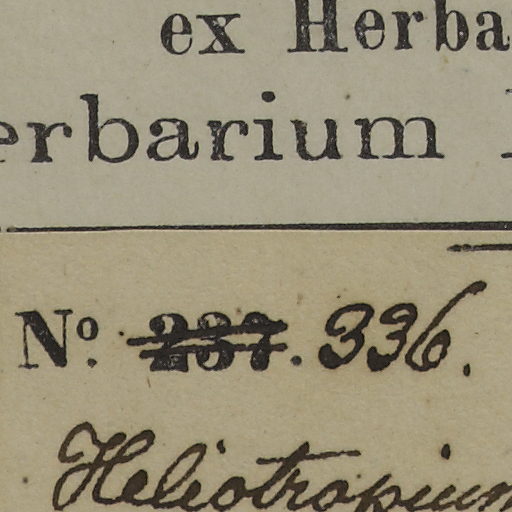 ex Herba
erbarium
No. 237. 336.
Heliotropium